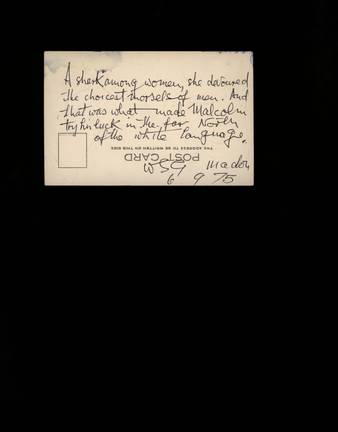 A shark among women, she devoured
the choicest morsels of men. And
that was what made Malcolm
try his luck in the far North
of the white language.
THE ADDRESS TO BE WRITTEN ON THIS SIDE
POST CARD
WSG
6 9 75